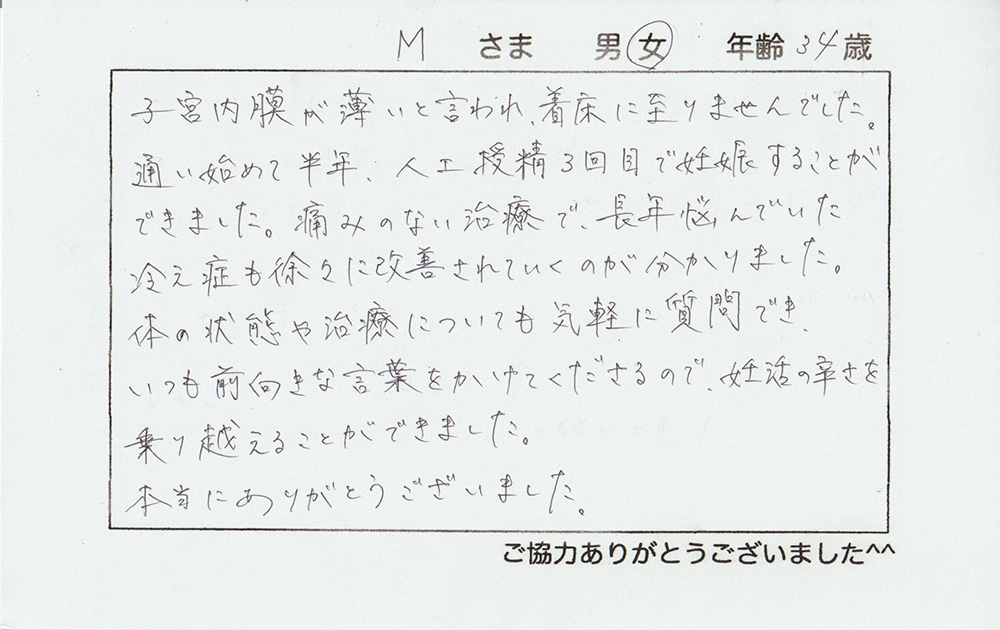 M さま 男 女 年齢 34 歳
子宮内膜が薄いと言われ、着床に至りませんでした。
通い始めて半年、人工授精3回目で妊娠することが
できました。痛みのない治療で、長年悩んでいた
冷え症も徐々に改善されていくのが分かりました。
体の状態や治療についても気軽に質問でき、
いつも前向きな言葉をかけてくださるので、妊活の辛さを
乗り越えることができました。
本当にありがとうございました。
ご協力ありがとうございました^^